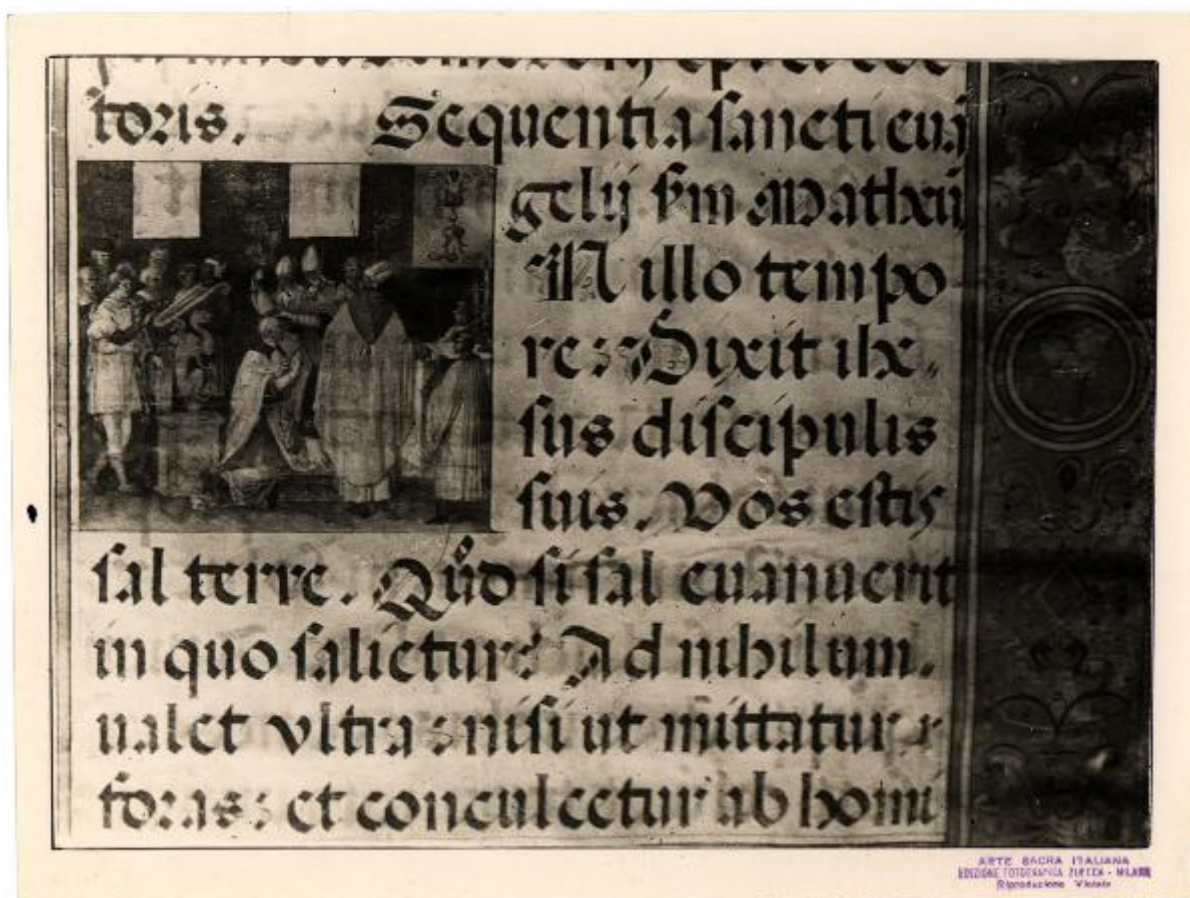 toris. Sequentia sancti eua
gelij sm Mathei
IN illo tempo
re: Dixit ihe
sus discipulis
suis. Vos estis
sal terre. Quod si sal euanuerit
in quo salietur? Ad nihilum
ualet vltra: nisi ut mittatur
foras: et conculcetur ab homi
ARTE SACRA ITALIANA
EDIZIONE FOTOGRAFICA ZUECCA - MILANO
Riproduzione Vietata